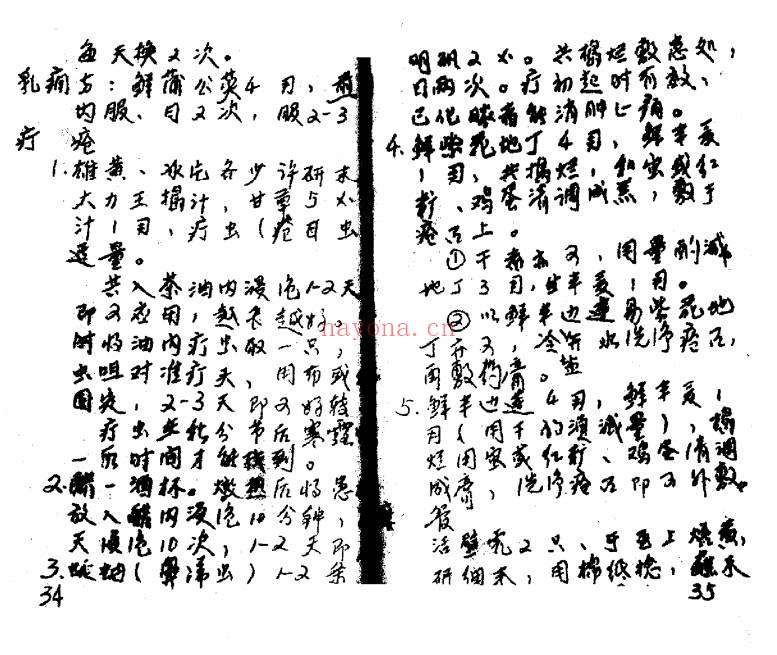 每天换2次。
乳痈方：鲜蒲公英4两，煎
内服、日2次，服2-3
疔疮
1.雄黄、冰片各少许研末
大力王捣汁，甘草5分
汁1两，疔虫（疮目虫
适量。
共入茶油内浸泡1-2天
即可应用，越长越好。
时将油内疔虫取一只，
虫咀对准疔头，用布或
固定，2-3天即可好转
疔虫时
一般时间才能
2.醋一酒杯。燉热后将患
放入醋内浸泡10分钟，
天浸泡10次，1-2天即
3.蜒蚰（鼻涕虫）1-2条
34
明矾2分。共捣烂敷患处，
日两次。疗初起时有效、
已化脓者能消肿止痛。
4.鲜紫花地丁4两，鲜半夏
1两，共捣烂，和蜜或红
粉、鸡蛋清调成羔，敷于
疮口上。
①干者亦可，用量酌减
地丁3两，生半夏1两。
②以鲜半边莲易紫花地
丁亦可。冷盐水洗净疮口，
再敷药膏。
5.鲜半边莲4两，鲜半夏1
两（用干的须减量），捣
烂用蜜或红粉、鸡蛋清调
成膏，洗净疮口即可外敷。
活壁虎2只、于瓦上焙黄，
研细末，用棉纸捻，蘸末
35
nayona.cn